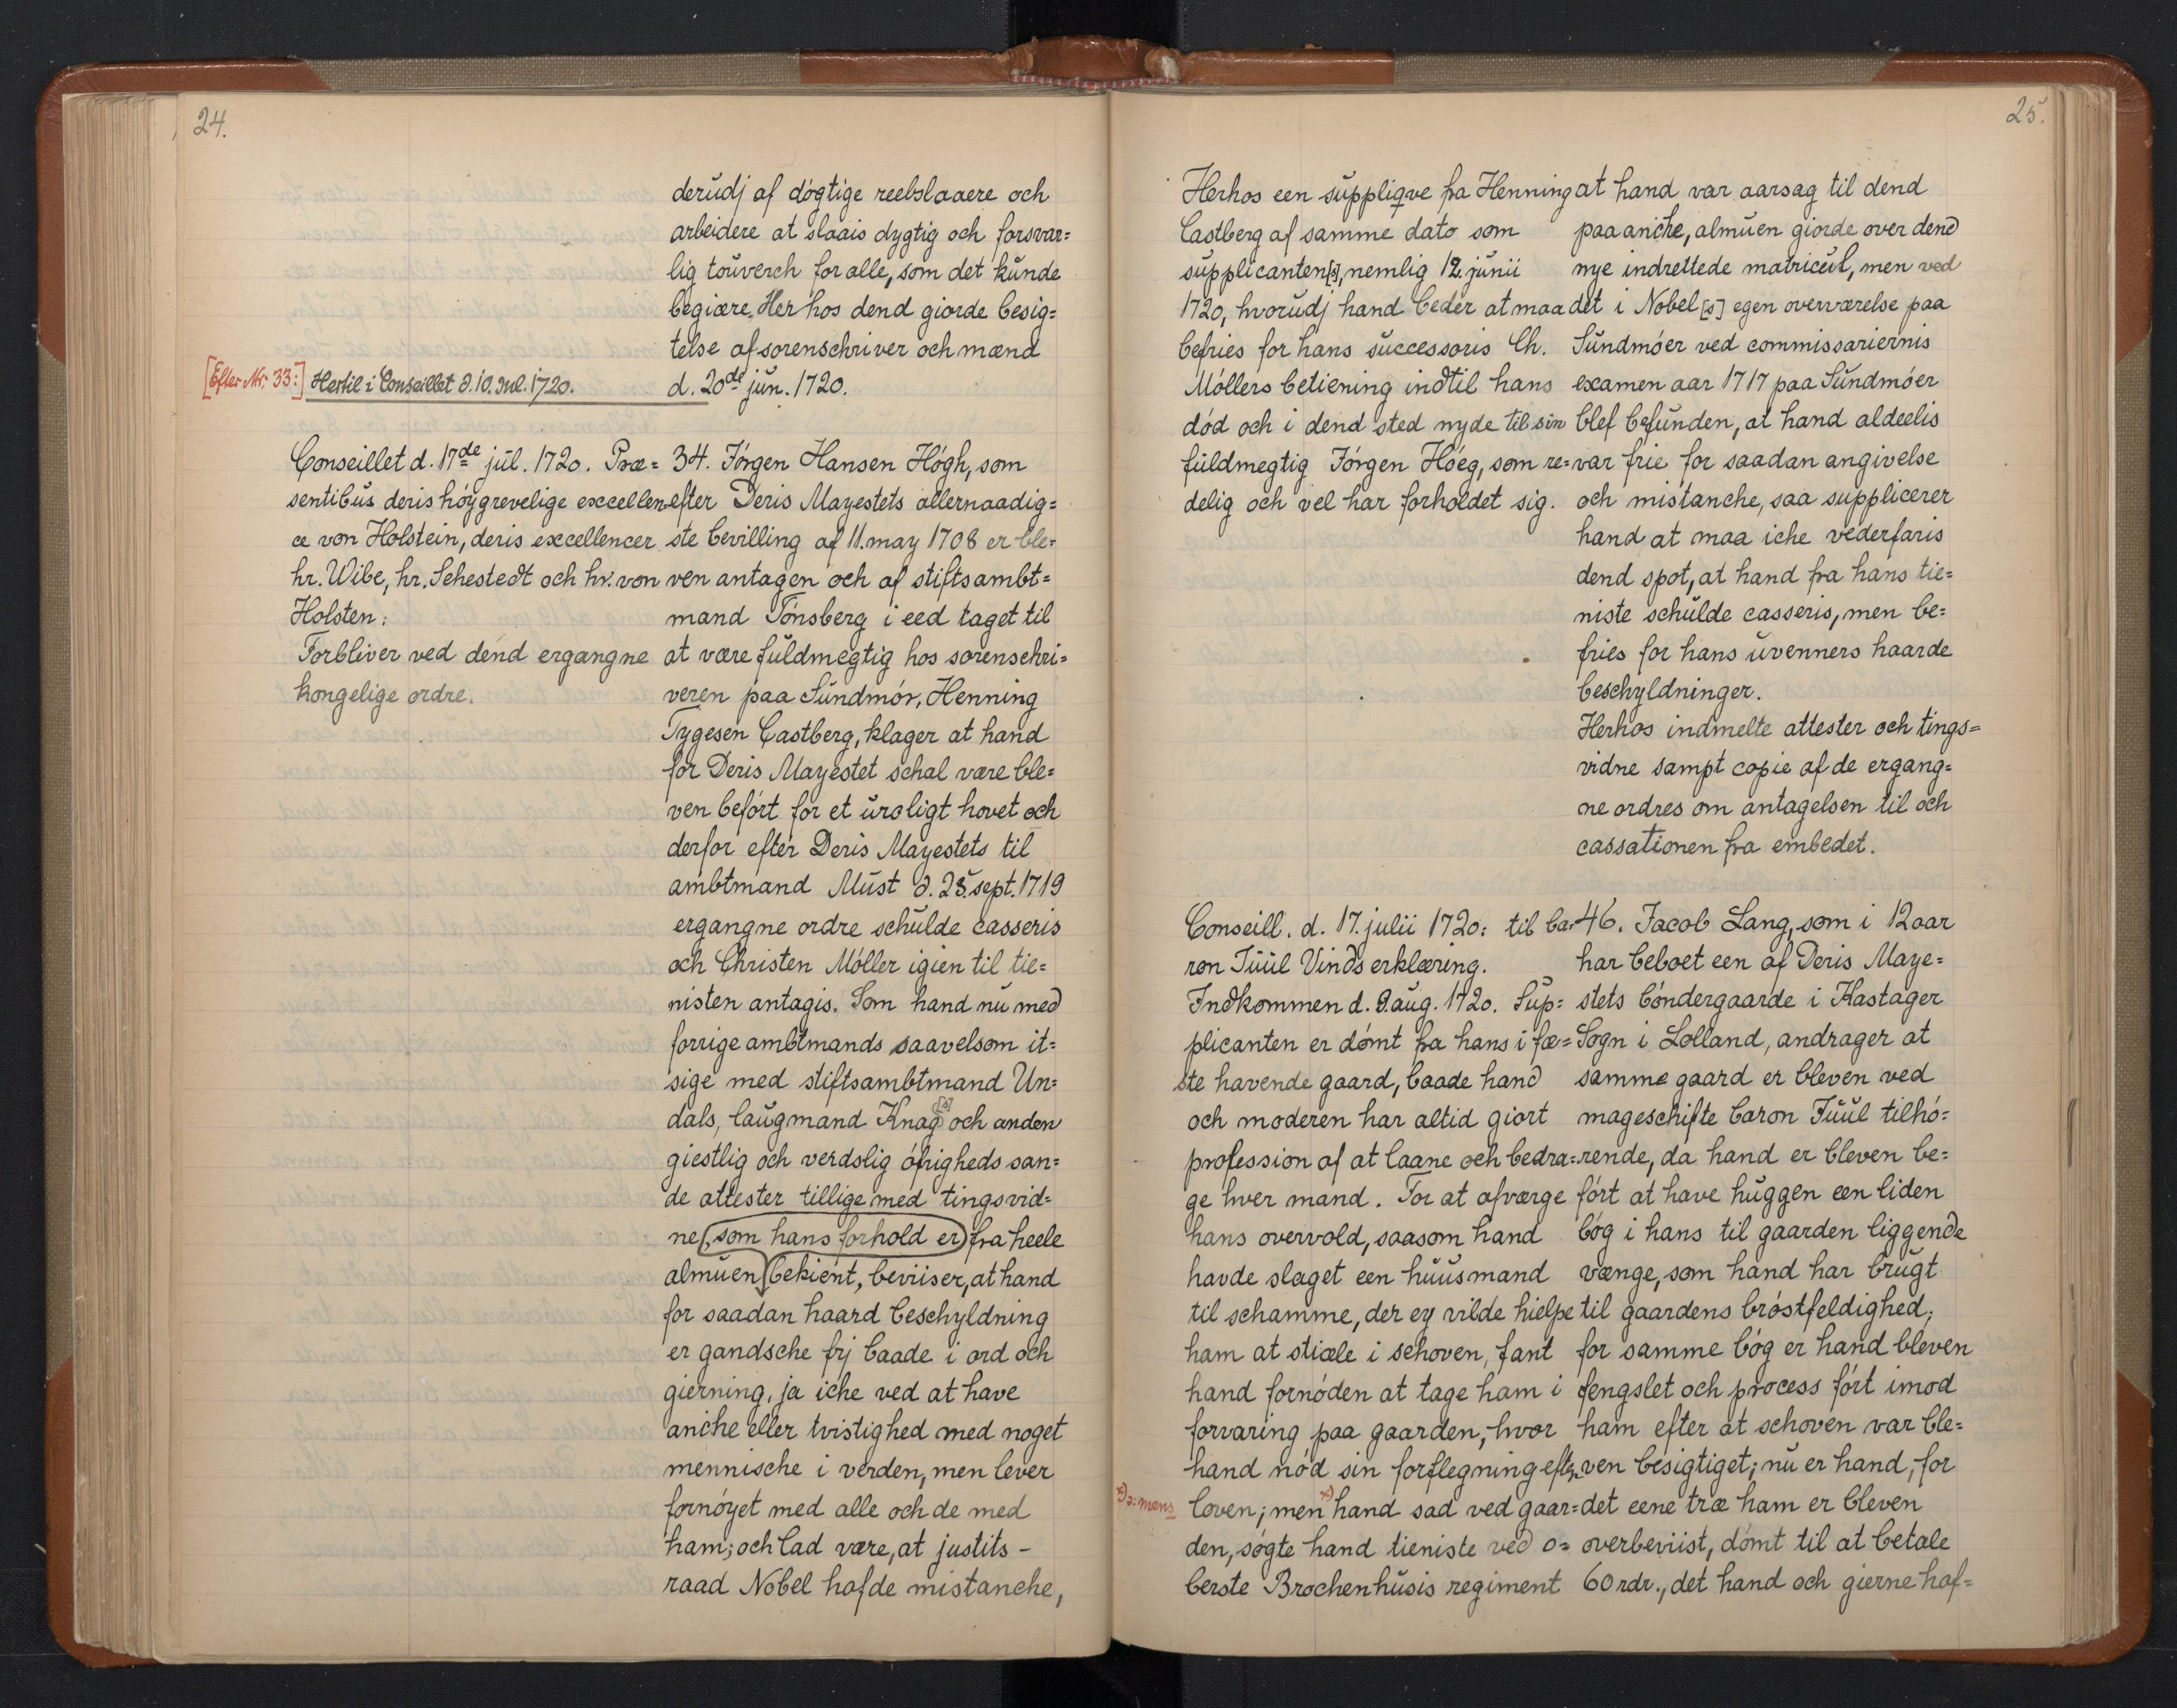 24.
derudj af dógtige reebslaaere och
arbeidere at slaais dygtig och forsvar=
lig touverch for alle, som det kunde
begiære. Her hos dend giorde besig=
telse af sorenschriver och mænd
d. 20de jun. 1720.
[Efter Nr. 33:] Hertil i Conseillet d. 10. Jul. 1720.
Conseillet d. 17de jul. 1720. Præ=
sentibus deris hóygrevelige excellen=
ce von Holstein, deris excellencer
hr. Wibe, hr. Sehestedt och hr. von
Holsten:
Forbliver ved dend ergangne
kongelige ordre.
34. Jórgen Hansen Hógh, som
efter Deris Mayestets allernaadig=
ste bevilling af 11. may 1708 er ble=
ven antagen och af stiftsambt=
mand Tónsberg i eed taget til
at være fuldmegtig hos sorenschri=
veren paa Sundmór, Henning
Tygesen Castberg, klager at hand
for Deris Mayestet schal være ble=
ven befórt for et uroligt hovet och
derfor efter Deris Mayestets til
ambtmand Must d. 25. sept. 1719
ergangne ordre schulde casseris
och Christen Móller igien til tie=
nisten antagis. Som hand nu med
forrige ambtmands saavelsom it=
sige med stiftsambtmand Un=
dals, laugmand Knag[s] och anden
giestlig och verdslig ófrigheds san=
de attester tillige med tingsvid=
ne (, som hans forhold er) fra heele
almuen bekient, beviiser, at hand
for saadan haard beschyldning
er gandsche frj baade i ord och
gierning, ja iche ved at have
anche eller tvistighed med noget
mennische i verden, men lever
fornóyet med alle och de med
ham; och lad være, at justits-
raad Nobel hafde mistanche,
25.
Herhos een suppliqve fra Henning
Castberg af samme dato som
supplicanten[s], nemlig 12. junii
1720, hvorudj hand beder at maa
befries for hans successoris Ch.
Móllers betiening indtil hans
dód och i dend sted nyde til sin
fuldmegtig Jórgen Hóeg, som re=
delig och vel har forholdet sig.
at hand var aarsag til dend
paa anche, almuen giorde over dend
nye indrettede matricul, men ved
det i Nobel[s] egen overværelse paa
Sundmóer ved commissariernis
examen aar 1717 paa Sundmóer
blef befunden, at hand aldeelis
var frie for saadan angivelse
och mistanche, saa supplicerer
hand at maa iche vederfaris
dend spot, at hand fra hans tie=
niste schulde casseris, men be=
fries for hans uvenners haarde
beschyldninger.
Herhos indmelte attester och tings=
vidne sampt copie af de ergang=
ne ordres om antagelsen til och
cassationen fra embedet.
Conseill. d. 17. julii 1720: til ba=
ron Juul Vinds erklæring.
Indkommen d. 9. aug. 1720. Sup=
plicanten er dómt fra hans i fæ=
ste havende gaard, baade hand
och moderen har altid giort
profession af at laane och bedra=
ge hver mand. For at afværge
hans overvold, saasom hand
havde slaget een huusmand
til schamme, der ey vilde hielpe
ham at stiæle i schoven, fant
hand fornóden at tage ham i
forvaring paa gaarden, hvor
hand nód sin forflegning efter
loven; men *) hand sad ved gaar=
den, sógte hand tieniste ved o=
berste Brochenhusis regiment
*) ɔ: mens
46. Jacob Lang, som i 12 aar
har beboet een af Deris Maye=
stets bóndergaarde i Kastager
Sogn i Lolland, andrager at
samme gaard er bleven ved
mageschifte baron Juul tilhó=
rende, da hand er bleven be=
fórt at have huggen een liden
bóg i hans til gaarden liggende
vænge, som hand har brugt
til gaardens bróstfeldighed;
for samme bóg er hand bleven
fengslet och process fórt imod
ham efter at schoven var ble=
ven besigtiget; nu er hand, for
det eene træ ham er bleven
overbeviist, dómt til at betale
60 rdr., det hand och gierne haf=